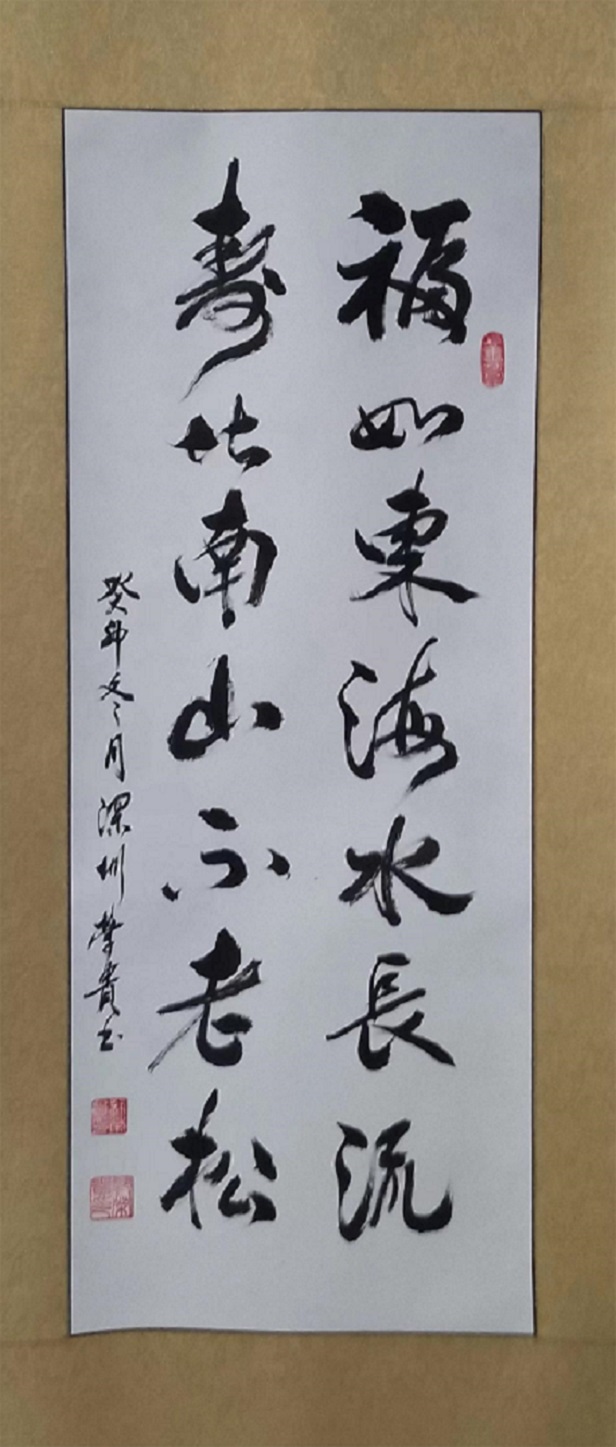 福如東海水長流
壽比南山不老松
癸卯冬月深圳
貴书